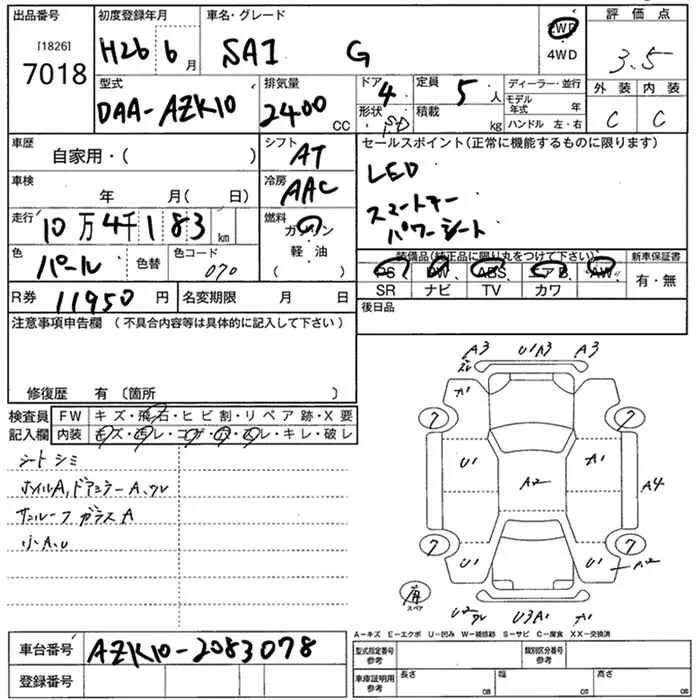 出品番号 初度登録年月 車名・グレード 評価点
[1826]
7018 H26 6月 SAI G 2WD 4WD 3.5
型式 排気量 ドア 4 定員 5人 ディーラー・並行 外装 内装
DAA-AZK10 2400CC 形状 SD 積載 kg モデル年式 年 ハンドル 左・右 C C
車歴 シフト セールスポイント(正常に機能するものに限ります)
自家用・( ) AT LED
車検 冷房 スマートキー
年 月( 日) AAC パワーシート
走行 燃料
10万4千183km ガソリン
色 色替 色コード 軽油 装備品(純正品に限り丸をつけて下さい) 新車保証書
パール 070 ( ) PS PW ABS エアB AW 有・無
SR ナビ TV カワ
R券 11950円 名変期限 月 日 後日品
注意事項申告欄 (不具合内容等は具体的に記入して下さい)
修復歴 有 〔箇所 〕
検査員 FW キズ・飛石・ヒビ割・リペア跡・X要
記入欄 内装 キズ・汚レ・コゲ・穴・スレ・キレ・破レ
シートシミ
ホイルA、ドアミラーA、ワレ
サンルーフガラスA
小A、U
A3 U1A3 A3
ズレ
A1
7 7
U1 A1
A2 A4
7 7
U1 U1 A2
スペア
U2 ワレ U3A1 A1
A-キズ E-エクボ U-凹み W-補修跡 S-サビ C-腐食 XX-交換済
車台番号 AZK10-2083078
型式指定番号 参考 類別区分番号 参考
登録番号
車庫証明用 参考 長さ cm 幅 cm 高さ cm